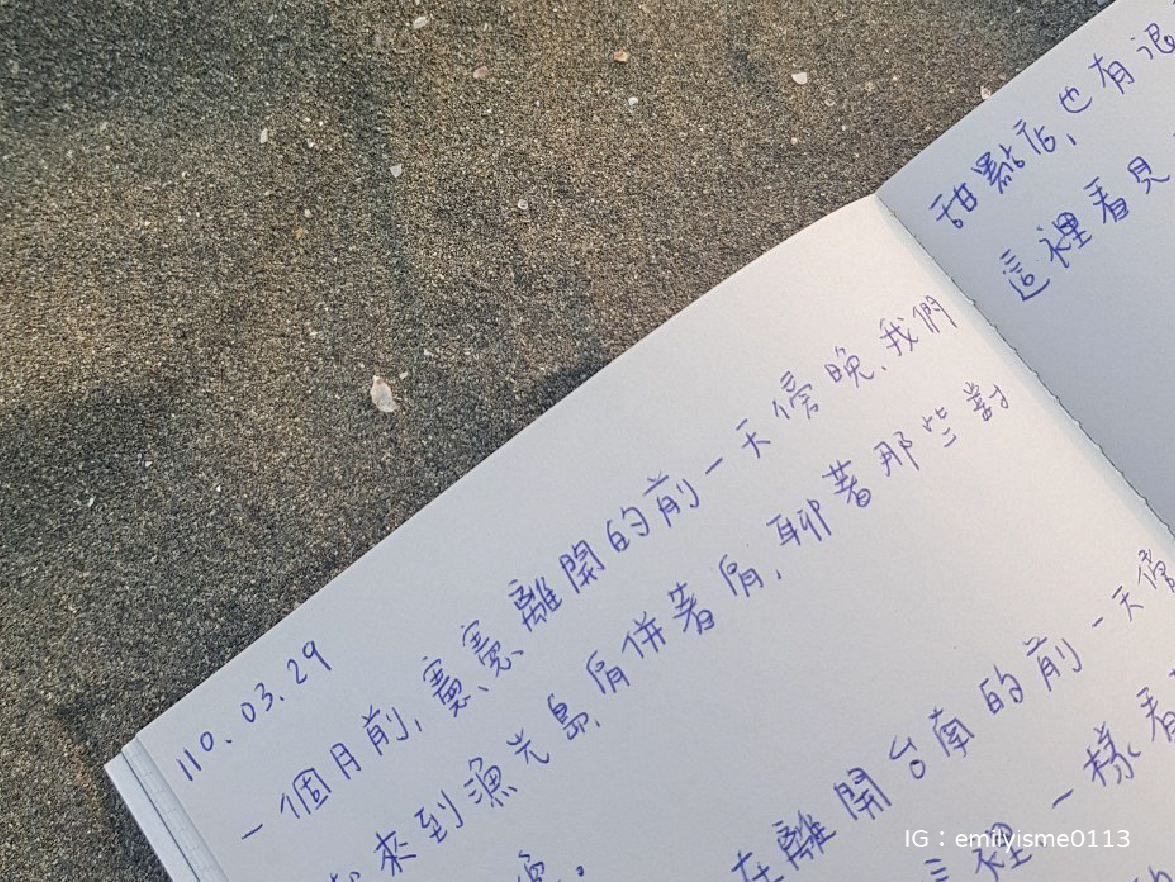 110.03.29
一個月前,憲憲離開的前一天傍晚,我們
來到漁光島,肩併著肩,聊著那些對
在離開台南的前一天傍
這裡一樣看
甜點店,也有
這裡看見
IG：emilyisme0113